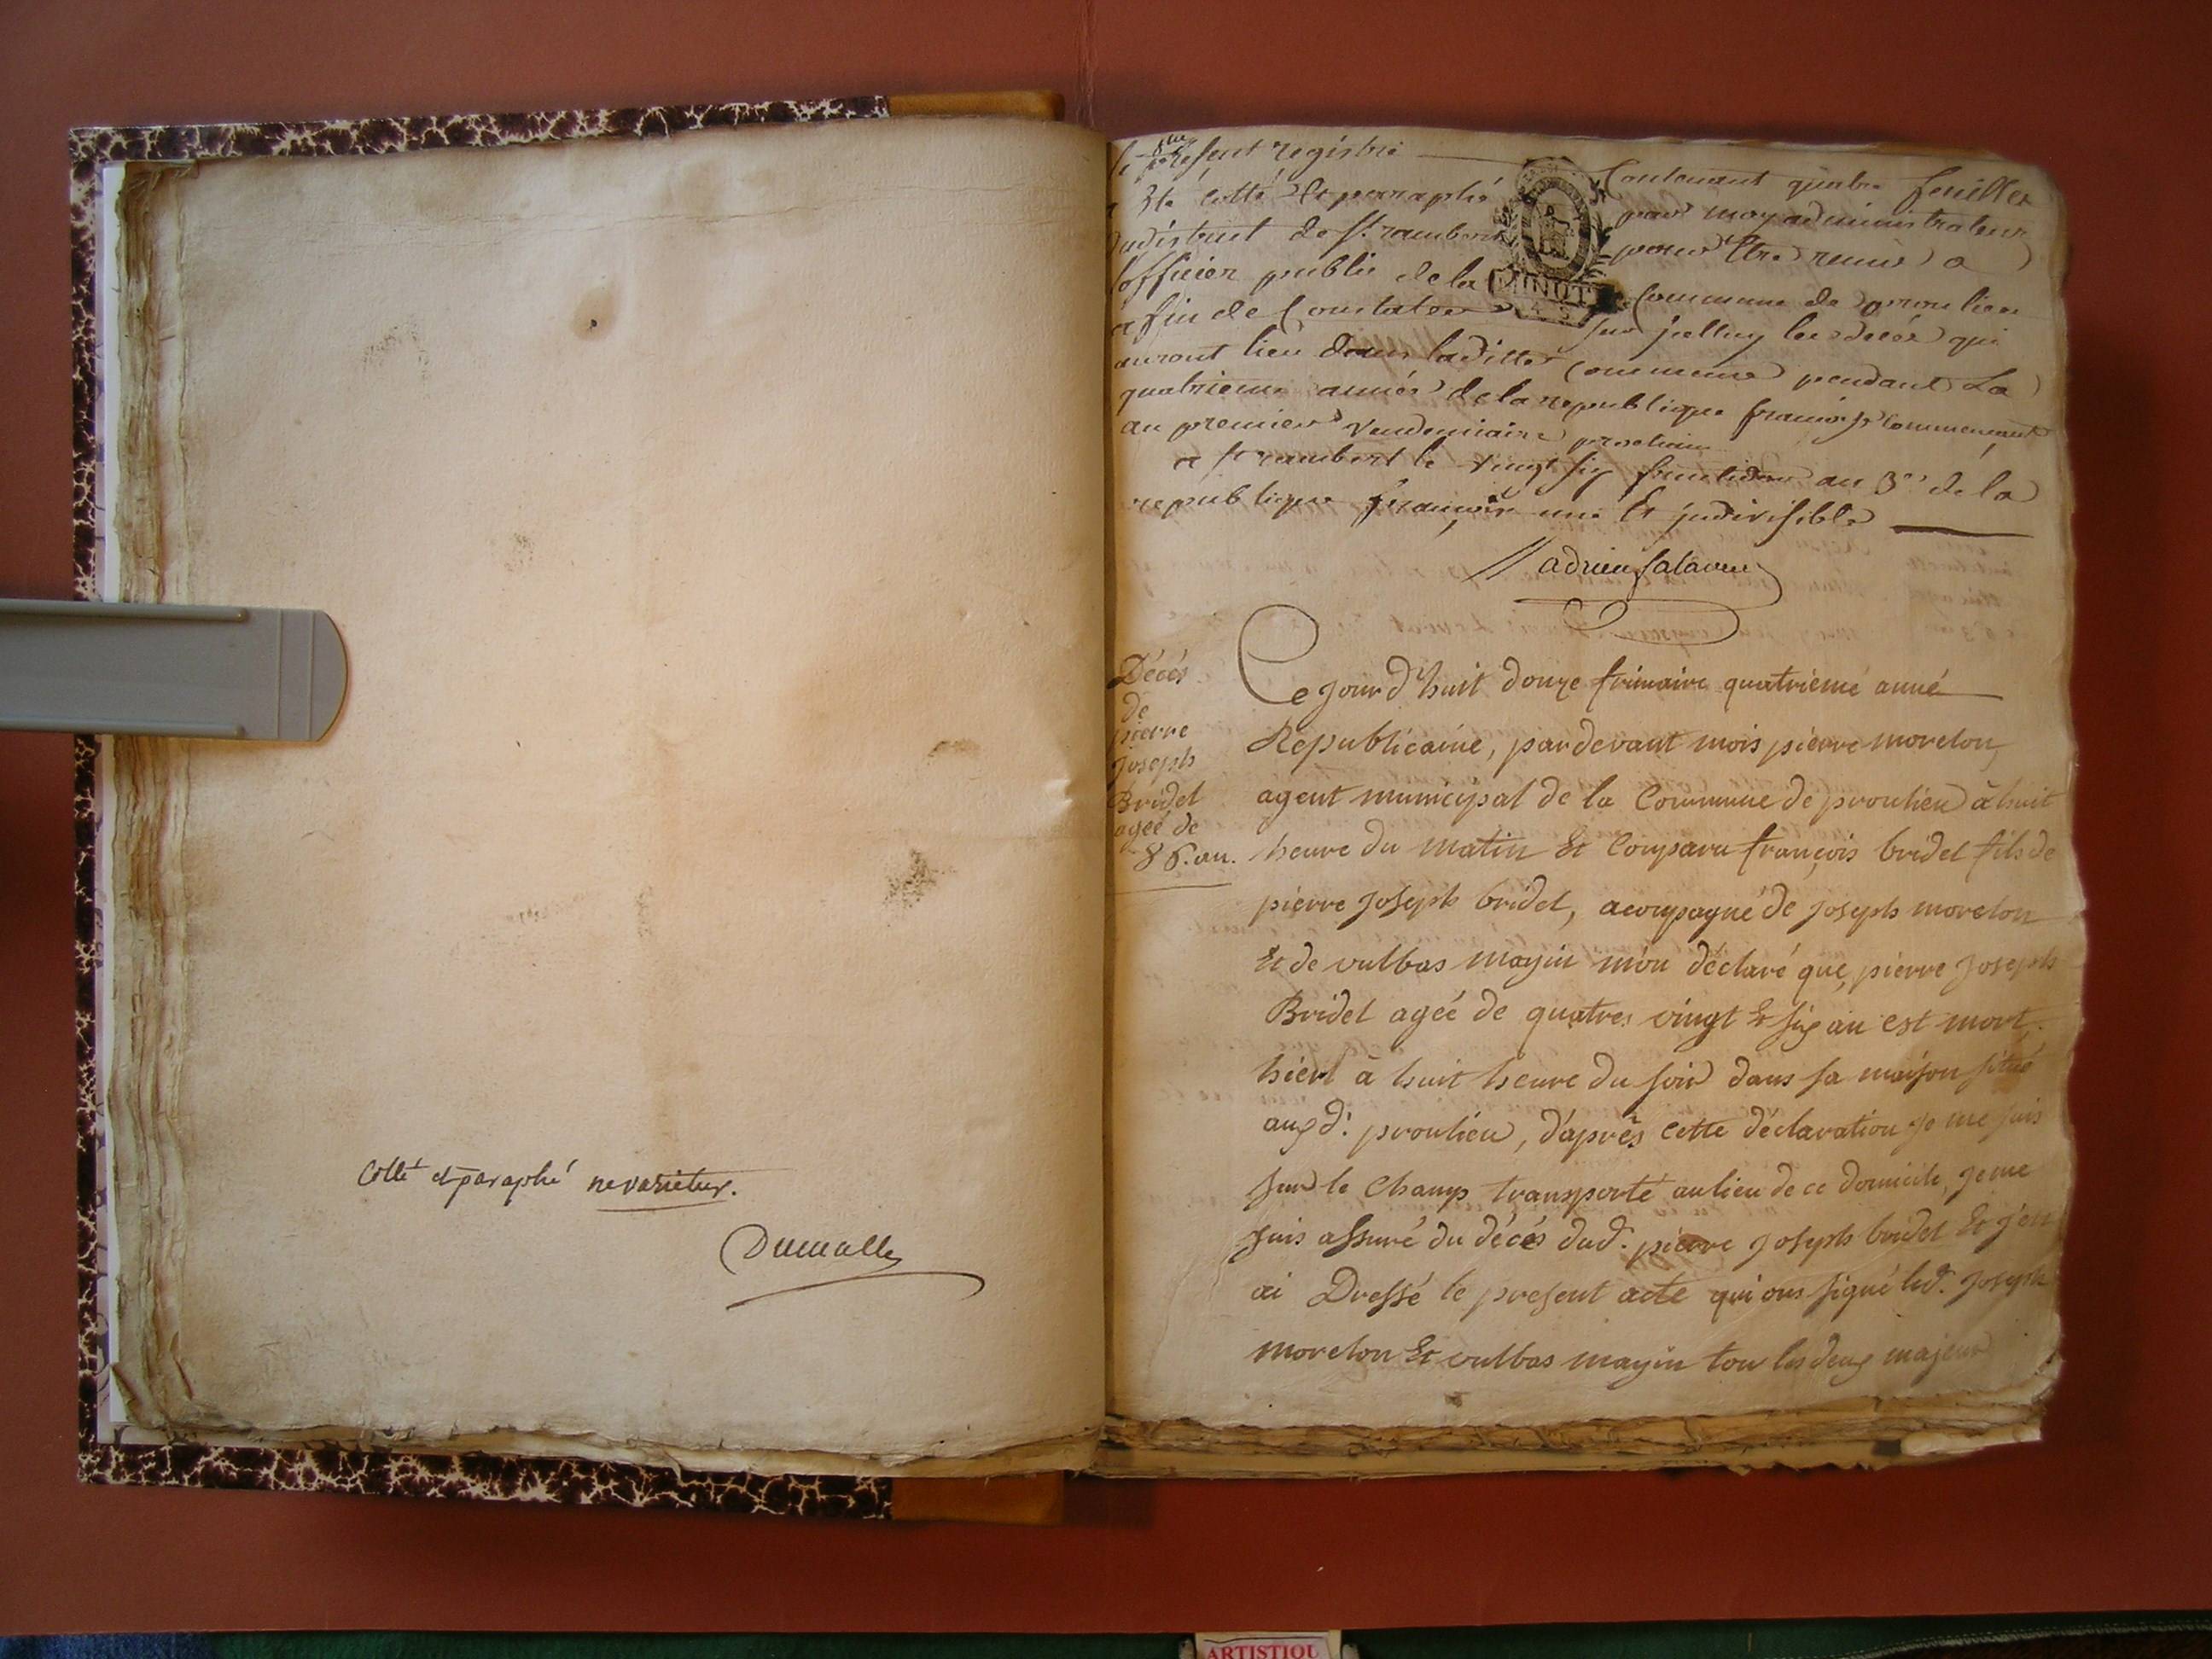 Cotté et paraphé nevarietur.
Dumalle
le present registre contenant quatre feuilles
a été cotté et parraphé par moy administrateur
du distric de St. rambert pour être remis a
l'officier public de la commune de proulieu
MINUT
a fin de constater sur jcelluy les décés qui
auront lieu dans laditte commune pendant La
quatrieme année de la republique francoise commencant
au premier vendemiaire prochain
a st rambert le vingt six fructidor an 3e. de la
republique françoise une et jndivisible
adrien Salavue
Décés
de
pierre
Joseph
Bridel
ageé de
86. an.
Ce jourd'huit douze frimaire quatrieme anné
Republicaine, pardevant mois pierre morelon,
agent municipal de la Commune de proulieu à huit
heure du matin Et Comparu françois bridel fils de
pierre Joseph bridel, acompagné de Joseph morelon
Et de vulbas mazin m'on déclaré que, pierre Joseph
Bridel ageé de quatres vingt Et six an est mort,
hiert à huit heure du soir dans sa maison situé
aux d. proulieu, d'aprês cette déclaration je me suis
sur le Champs transporté au lieu de ce domicile, je me
suis assuré du décés dud. pierre Joseph bridel Et j'en
ai Dressé le present acte qui ons signé led. Joseph
morelon Et vulbas mazin tou les deux majeur
ARTISTIQU